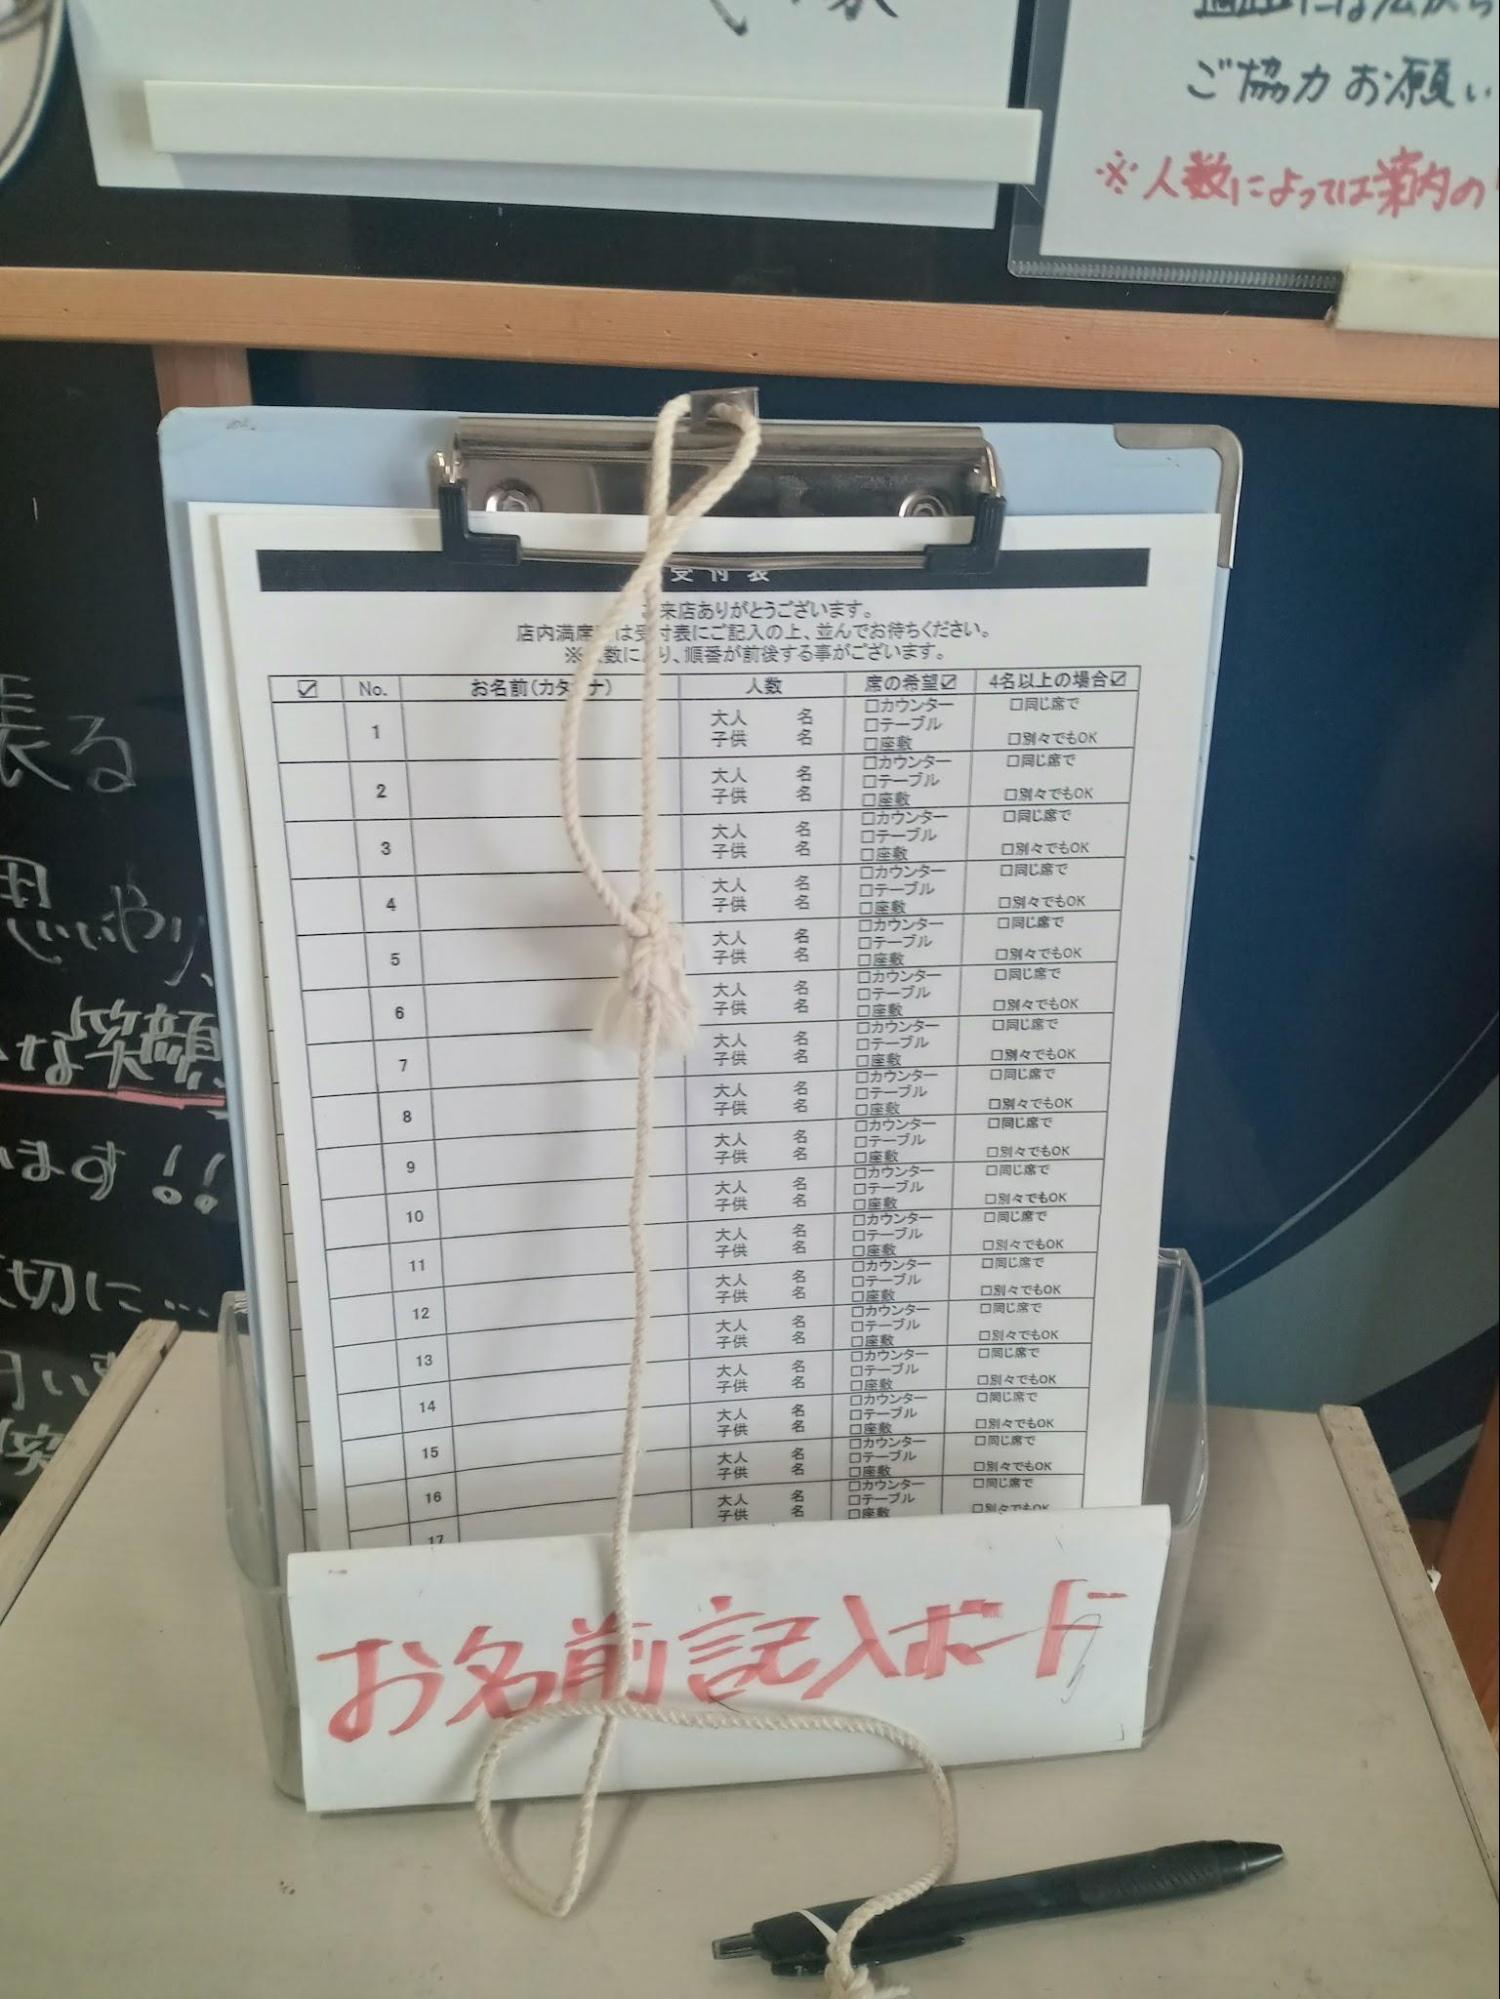 ご協力お願い
※人数によっては案内の
張る
思いやり、
な笑顔
ます!!
切に...
受付表
来店ありがとうございます。
店内満席 は受付表にご記入の上、並んでお待ちください。
※ 数に り、順番が前後する事がございます。
☑ No. お名前(カタ ナ) 人数 席の希望☑ 4名以上の場合☑
1 大人 名 子供 名 □カウンター □テーブル □座敷 □同じ席で □別々でもOK
2 大人 名 子供 名 □カウンター □テーブル □座敷 □同じ席で □別々でもOK
3 大人 名 子供 名 □カウンター □テーブル □座敷 □同じ席で □別々でもOK
4 大人 名 子供 名 □カウンター □テーブル □座敷 □同じ席で □別々でもOK
5 大人 名 子供 名 □カウンター □テーブル □座敷 □同じ席で □別々でもOK
6 大人 名 子供 名 □カウンター □テーブル □座敷 □同じ席で □別々でもOK
7 大人 名 子供 名 □カウンター □テーブル □座敷 □同じ席で □別々でもOK
8 大人 名 子供 名 □カウンター □テーブル □座敷 □同じ席で □別々でもOK
9 大人 名 子供 名 □カウンター □テーブル □座敷 □同じ席で □別々でもOK
10 大人 名 子供 名 □カウンター □テーブル □座敷 □同じ席で □別々でもOK
11 大人 名 子供 名 □カウンター □テーブル □座敷 □同じ席で □別々でもOK
12 大人 名 子供 名 □カウンター □テーブル □座敷 □同じ席で □別々でもOK
13 大人 名 子供 名 □カウンター □テーブル □座敷 □同じ席で □別々でもOK
14 大人 名 子供 名 □カウンター □テーブル □座敷 □同じ席で □別々でもOK
15 大人 名 子供 名 □カウンター □テーブル □座敷 □同じ席で □別々でもOK
16 大人 名 子供 名 □カウンター □テーブル □座敷 □同じ席で □別々でもOK
17
お名前記入ボード